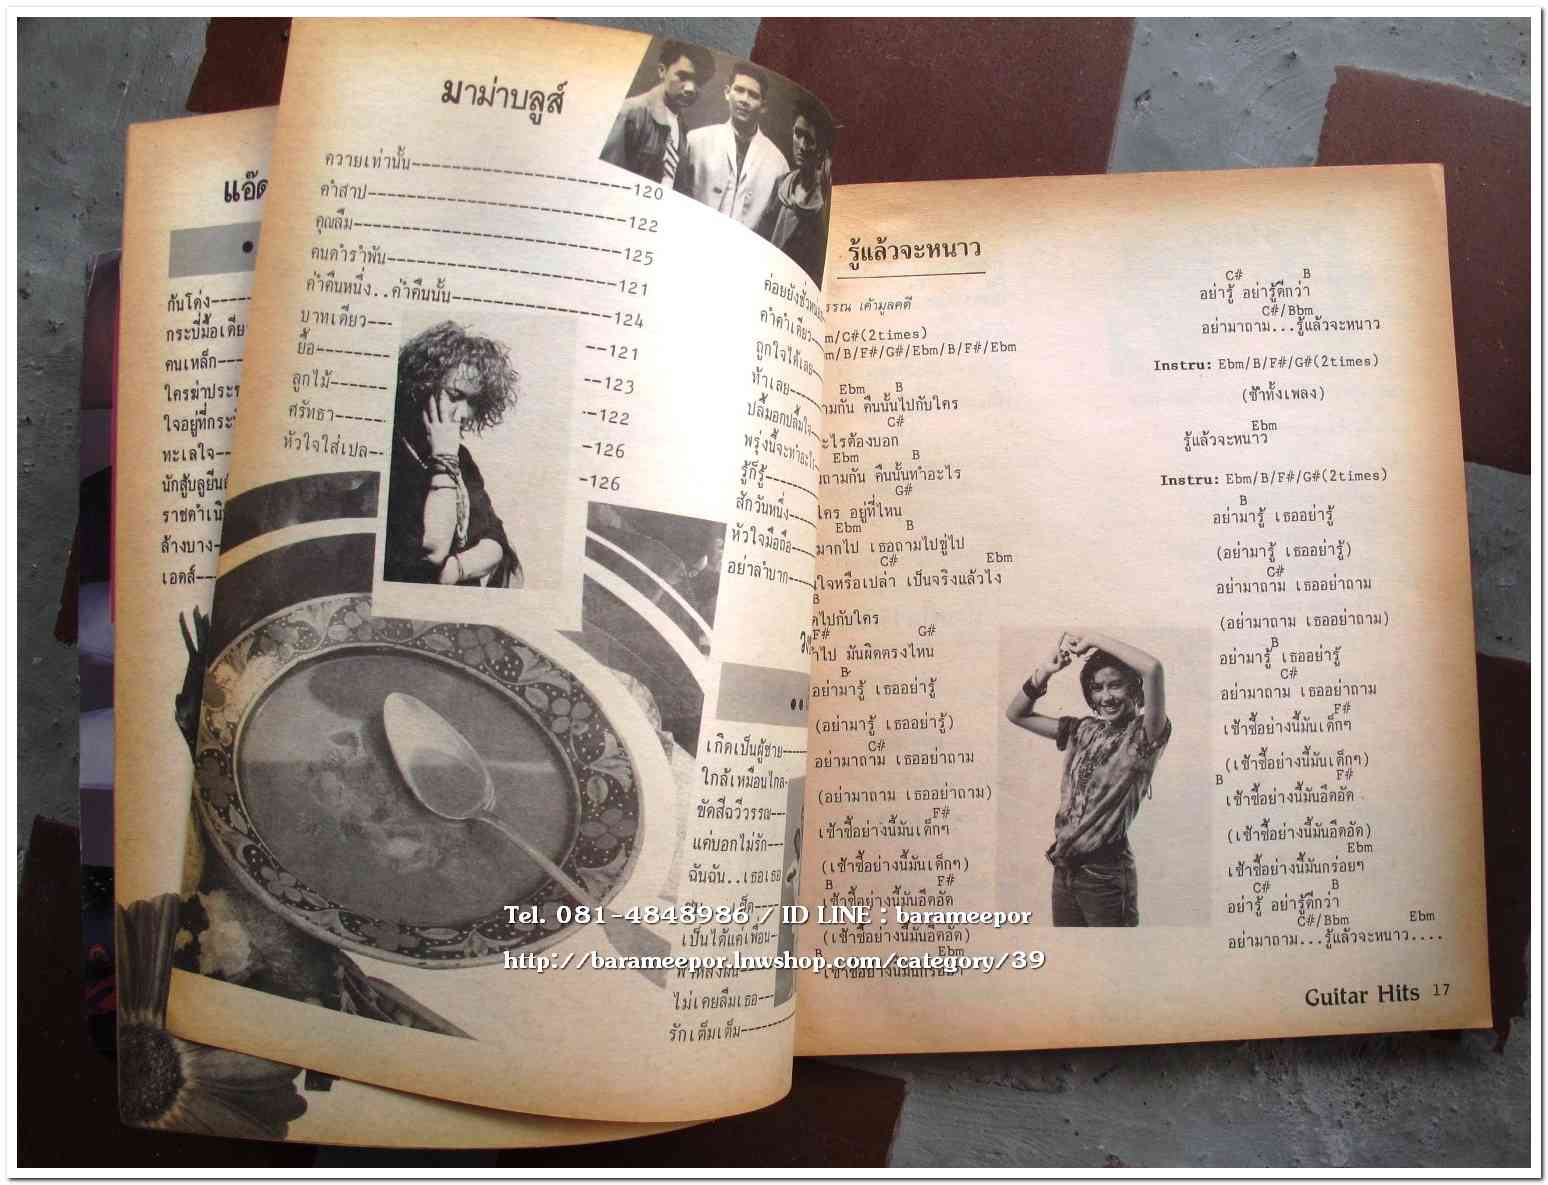 แอ๊ด
กันโค่ง
กระบี่มือเดีย
คนเหล็ก
ใครฆ่าประ
ใจอยู่ที่กระ
ทะเลใจ
นักสู้บลูยีน
ราชดำเนิ
ล้างบาง
เอดส์
มาม่าบลูส์
ควายเท่านั้น 120
คำสาป 122
คุณลืม 125
คนดำรำพัน 121
ค่ำคืนหนึ่ง..ค่ำคืนนั้น 124
บาทเดียว 121
ยื้อ 123
ลูกไม้ 122
ศรัทธา 126
หัวใจใส่เปล 126
ค่อยยังชั่ว
คำคำเดียว
ถูกใจได้เลย
ท้าเลย
ปลื้มอกปลื้มใจ
พรุ่งนี้จะทำอะไร
รู้ก็รู้
สักวันหนึ่ง
หัวใจมือถือ
อย่าลำบาก
เกิดเป็นผู้ชาย
ใกล้เหมือนไกล
ขัดสีฉวีวรรณ
แค่บอกไม่รัก
ฉันฉัน..เธอเธอ
เป็นได้แค่เพื่อน
ไม่เคยลืมเธอ
รักเต็มเต็ม
รู้แล้วจะหนาว
รรณ เค้ามูลคดี
m/C#(2times)
m/B/F#/G#/Ebm/B/F#/Ebm
Ebm B
ามกัน คืนนั้นไปกับใคร
C#
ะไรต้องบอก
Ebm B
ถามกัน คืนนั้นทำอะไร
G#
ใคร อยู่ที่ไหน
Ebm B
มากไป เธอถามไปขู่ไป
C# Ebm
นใจหรือเปล่า เป็นจริงแล้วไง
B
ดไปกับใคร
F# G#
าไป มันผิดตรงไหน
B
อย่ามารู้ เธออย่ารู้
(อย่ามารู้ เธออย่ารู้)
C#
อย่ามาถาม เธออย่าถาม
(อย่ามาถาม เธออย่าถาม)
F#
เซ้าซี้อย่างนี้มันเด็กๆ
(เซ้าซี้อย่างนี้มันเด็กๆ)
B F#
เซ้าซี้อย่างนี้มันอึดอัด
(เซ้าซี้อย่างนี้มันอึดอัด)
B Ebm
เซ้าซี้อย่างนี้มันกร่อยๆ
C# B
อย่ารู้ อย่ารู้ดีกว่า
C#/Bbm
อย่ามาถาม...รู้แล้วจะหนาว
Instru: Ebm/B/F#/G#(2times)
(ซ้ำทั้งเพลง)
Ebm
รู้แล้วจะหนาว
Instru: Ebm/B/F#/G#(2times)
B
อย่ามารู้ เธออย่ารู้
(อย่ามารู้ เธออย่ารู้)
C#
อย่ามาถาม เธออย่าถาม
(อย่ามาถาม เธออย่าถาม)
B
อย่ามารู้ เธออย่ารู้
C#
อย่ามาถาม เธออย่าถาม
F#
เซ้าซี้อย่างนี้มันเด็กๆ
(เซ้าซี้อย่างนี้มันเด็กๆ)
B F#
เซ้าซี้อย่างนี้มันอึดอัด
(เซ้าซี้อย่างนี้มันอึดอัด)
Ebm
เซ้าซี้อย่างนี้มันกร่อยๆ
C# B
อย่ารู้ อย่ารู้ดีกว่า
C#/Bbm Ebm
อย่ามาถาม...รู้แล้วจะหนาว....
Guitar Hits 17
Tel. 081-4848986 / ID LINE : barameepor
http://barameepor.lnwshop.com/category/39